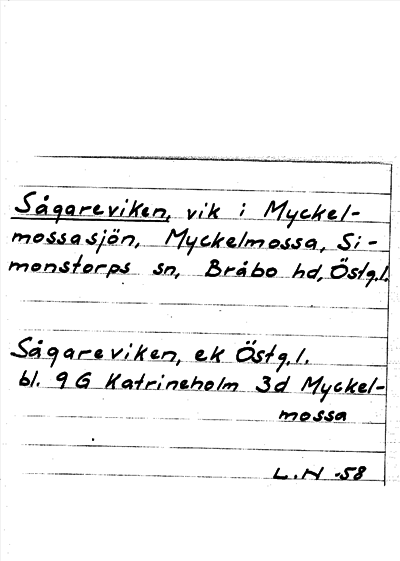 Sågareviken, vik i Myckel-
mossasjön, Myckelmossa, Si-
monstorps sn, Bråbo hd, Östg.l.
Sågareviken, ek Östg.l.
bl. 9 G Katrineholm 3d Myckel-
mossa
L.N -58